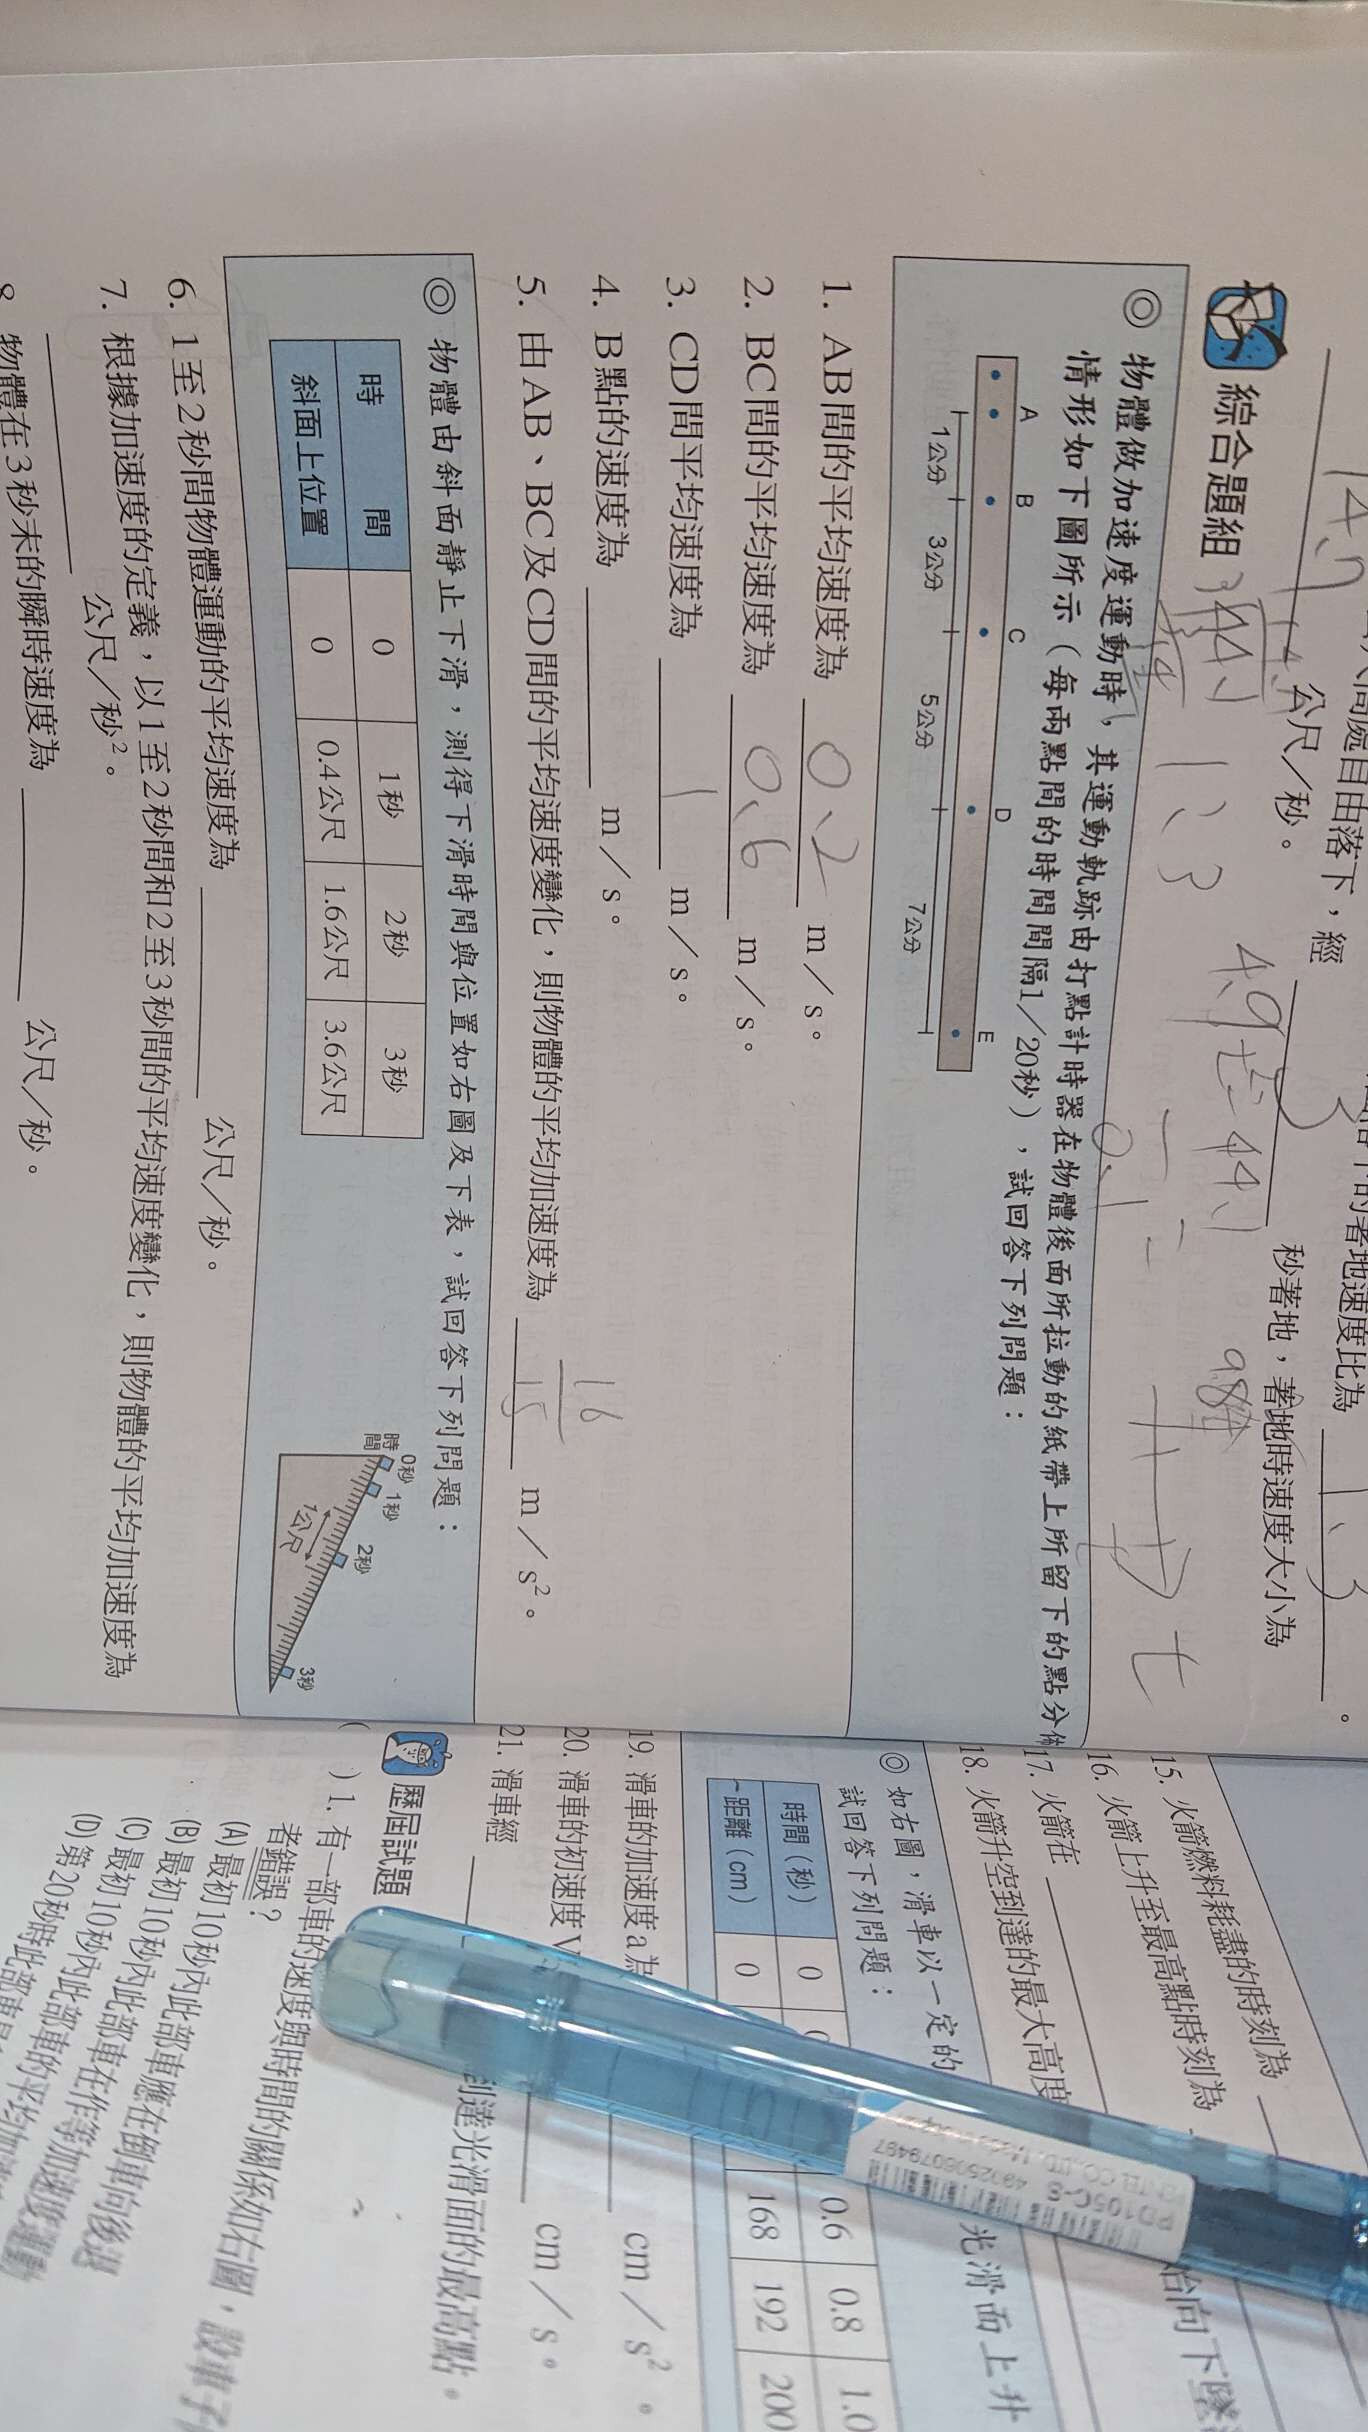 14.7 公尺／秒。
秒著地，著地時速度大小為
1、3
綜合題組
1、3
4.9 t² = 44.1
◎ 物體做加速度運動時，其運動軌跡由打點計時器在物體後面所拉動的紙帶上所留下的點分佈
情形如下圖所示（每兩點間的時間間隔1／20秒），試回答下列問題：
A B C D E
1公分 3公分 5公分 7公分
1. AB間的平均速度為 0、2 m／s。
2. BC間的平均速度為 0、6 m／s。
3. CD間平均速度為 1 m／s。
4. B點的速度為 m／s。
5. 由AB、BC及CD間的平均速度變化，則物體的平均加速度為 m／s²。
16
15
◎ 物體由斜面靜止下滑，測得下滑時間與位置如右圖及下表，試回答下列問題：
時間 0 1秒 2秒 3秒
斜面上位置 0 0.4公尺 1.6公尺 3.6公尺
時間 0秒 1秒 2秒 3秒
1公尺
6. 1至2秒間物體運動的平均速度為 公尺／秒。
7. 根據加速度的定義，以1至2秒間和2至3秒間的平均速度變化，則物體的平均加速度為
公尺／秒²。
8. 物體在3秒末的瞬時速度為 公尺／秒。
15. 火箭燃料耗盡的時刻為
16. 火箭上升至最高點時刻為
17. 火箭在 始向下墜
18. 火箭升空到達的最大高度
◎ 如右圖，滑車以一定的 光滑面上升
試回答下列問題：
時間（秒） 0 0.6 0.8 1.0
距離（cm） 0 168 192 200
19. 滑車的加速度a為 cm／s²。
20. 滑車的初速度V cm／s。
21. 滑車經 到達光滑面的最高點。
歷屆試題
( ) 1. 有一部車的速度與時間的關係如右圖，設車子
者錯誤？
(A)最初10秒內此部車應在倒車向後退
(B)最初10秒內此部車在作等加速度運動
(C)最初10秒內此部車的平均加速
(D)第20秒時此部車